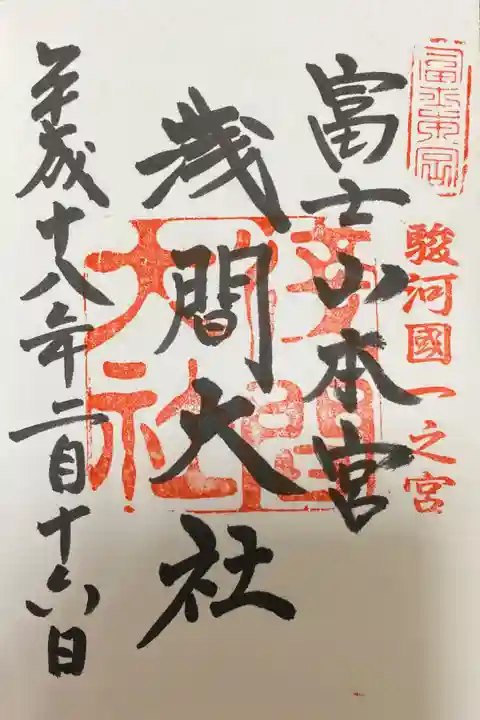 駿河國一之宮
富士山本宮
浅間大社
淺間
大社
平成十八年二月十六日